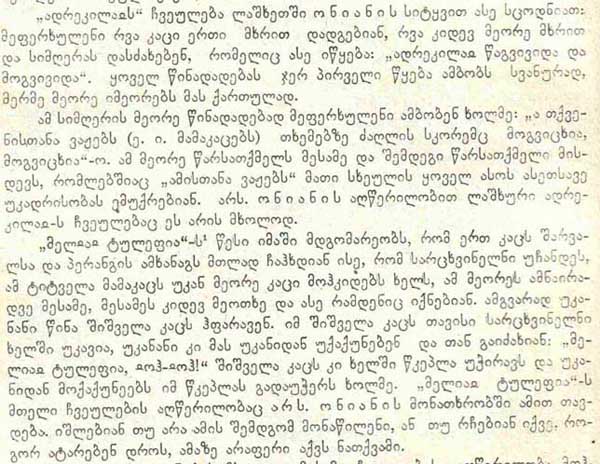 „ადრეკილაჲს“ ჩვეულება ლაშხეთში ონიანის სიტყვით ასე სცოდნიათ:
მეფერხულენი რვა კაცი ერთი მხრით დადგებიან, რვა კიდევ მეორე მხრით
და სიმღერას დასძახებენ, რომელიც ასე იწყება: „ადრეკილაჲ წაგვივიდა და
მოგვივიდა“. ყოველ წინადადებას ჯერ პირველი წყება ამბობს სვანურად,
მერმე მეორე იმეორებს მას ქართულად.
ამ სიმღერის მეორე წინადადებად მეფერხულენი ამბობენ ხოლმე: „ა თქვე-
ნისთანა ვაჟებს (ე. ი. მამაკაცებს) თხემებზე ძაღლის სკორემც მოგვიცხია,
მოგვიცხია“-ო. ამ მეორე წარსათქმელს მესამე და შემდეგი წარსათქმელი მის-
დევს, რომლებშიაც „ამისთანა ვაჟებს“ მათი სხეულის ყოველ ასოს ასეთსავე
უკადრისობას ემუქრებიან. არს. ონიანის აღწერილობით ლაშხური ადრე-
კილაჲ-ს ჩვეულებაც ეს არის მხოლოდ.
„მელიაჲ ტულეფია“-ს წესი იმაში მდგომარეობს, რომ ერთ კაცს შარვა-
ლსა და პერანგის ამხანაგს მთლად ჩაჰხდიან ისე, რომ სარცხვინელნი უჩანდეს,
ამ ტიტველა მამაკაცს უკან მეორე კაცი მოჰკიდებს ხელს, ამ მეორეს ამნაირა-
დვე მესამე, მესამეს კიდევ მეოთხე და ასე რამდენიც იქნებიან. ამგვარად უკა-
ნანი წინა შიშველა კაცს ჰფარავენ. იმ შიშველა კაცს თავისი სარცხვინელნი
ხელში უკავია, უკანანი კი მას უკანიდან უქაქუნებენ და თან გაიძახიან: „მე-
ლიაჲ ტულეფია, ჲოჰ-ჲოჰ!“ შიშველა კაცს კი ხელში წკეპლა უჭირავს და უკა-
ნიდან მოქაქუნეებს იმ წკეპლას გადაუჭერს ხოლმე. „მელიაჲ ტულეფია“-ს
მთელი ჩვეულების აღწერილობაც არს. ონიანის მონათხრობში ამით თავ-
დება. იშლებიან თუ არა ამის შემდგომ მონაწილენი, ან თუ რჩებიან იქვე, რო-
გორ ატარებენ დროს, ამაზე არაფერი აქვს ნათქვამი.